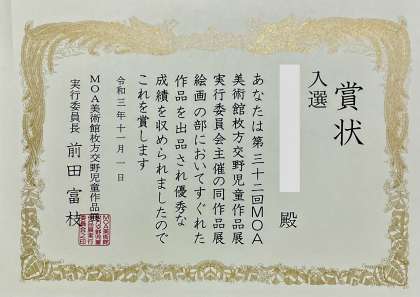 賞状
入選
殿
あなたは第三十二回MOA
美術館枚方交野児童作品展
実行委員会主催の同作品展
絵画の部においてすぐれた
作品を出品され優秀な
成績を収められましたので
これを賞します
令和三年十一月一日
MOA美術館枚方交野児童作品展
実行委員長 前田富枝